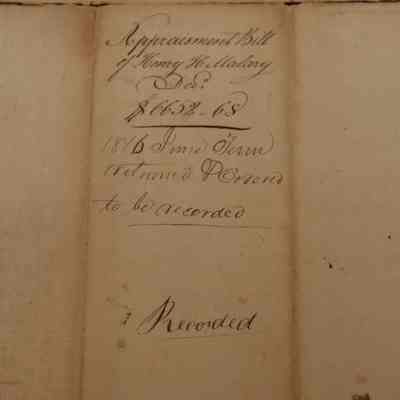 Appraisment Bill
of Henry H. Malory
Dec.d
$6652-68
1846 June Term
returned & Orderd
to be recorded
Recorded